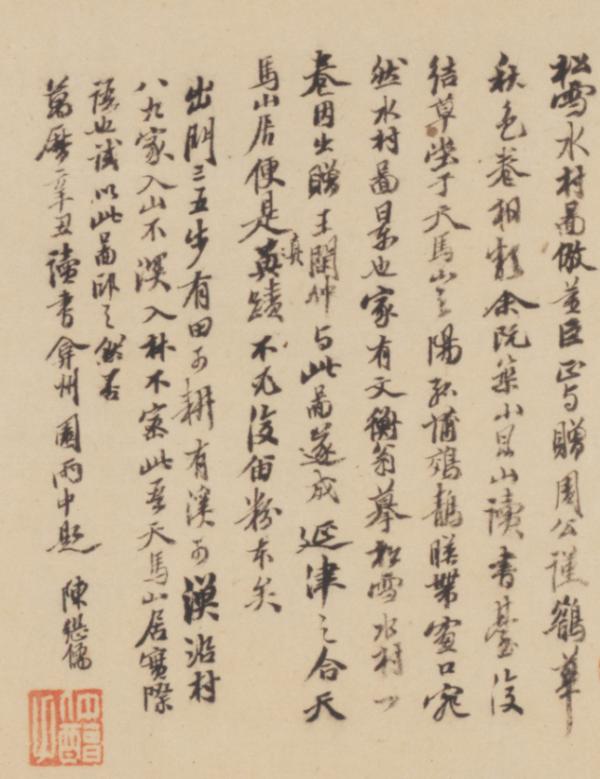 松雪水村圖倣董巨正与贈周公謹鵲華
秋色卷相類余既築小昆山讀書臺復
結草堂于天馬山之陽菰蒲鵁鶄映帶窗口宛
然水村圖景也家有文衡翁摹松雪水村一
卷因出贈王閏仲与此圖遂成延津之合天
馬山居便是真蹟不必復留粉本矣
出門三五步有田可耕有溪可漁沿村
八九家入山不深入林不密此吾天馬山居實際
語也試以此圖印之然否
萬曆辛丑讀書弇州園雨中題 陳繼儒